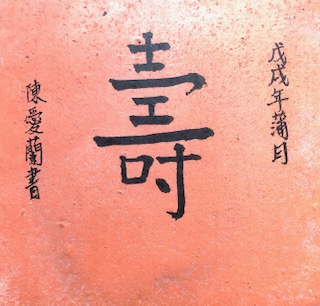 戊戌年蒲月
壽
陳愛蘭書